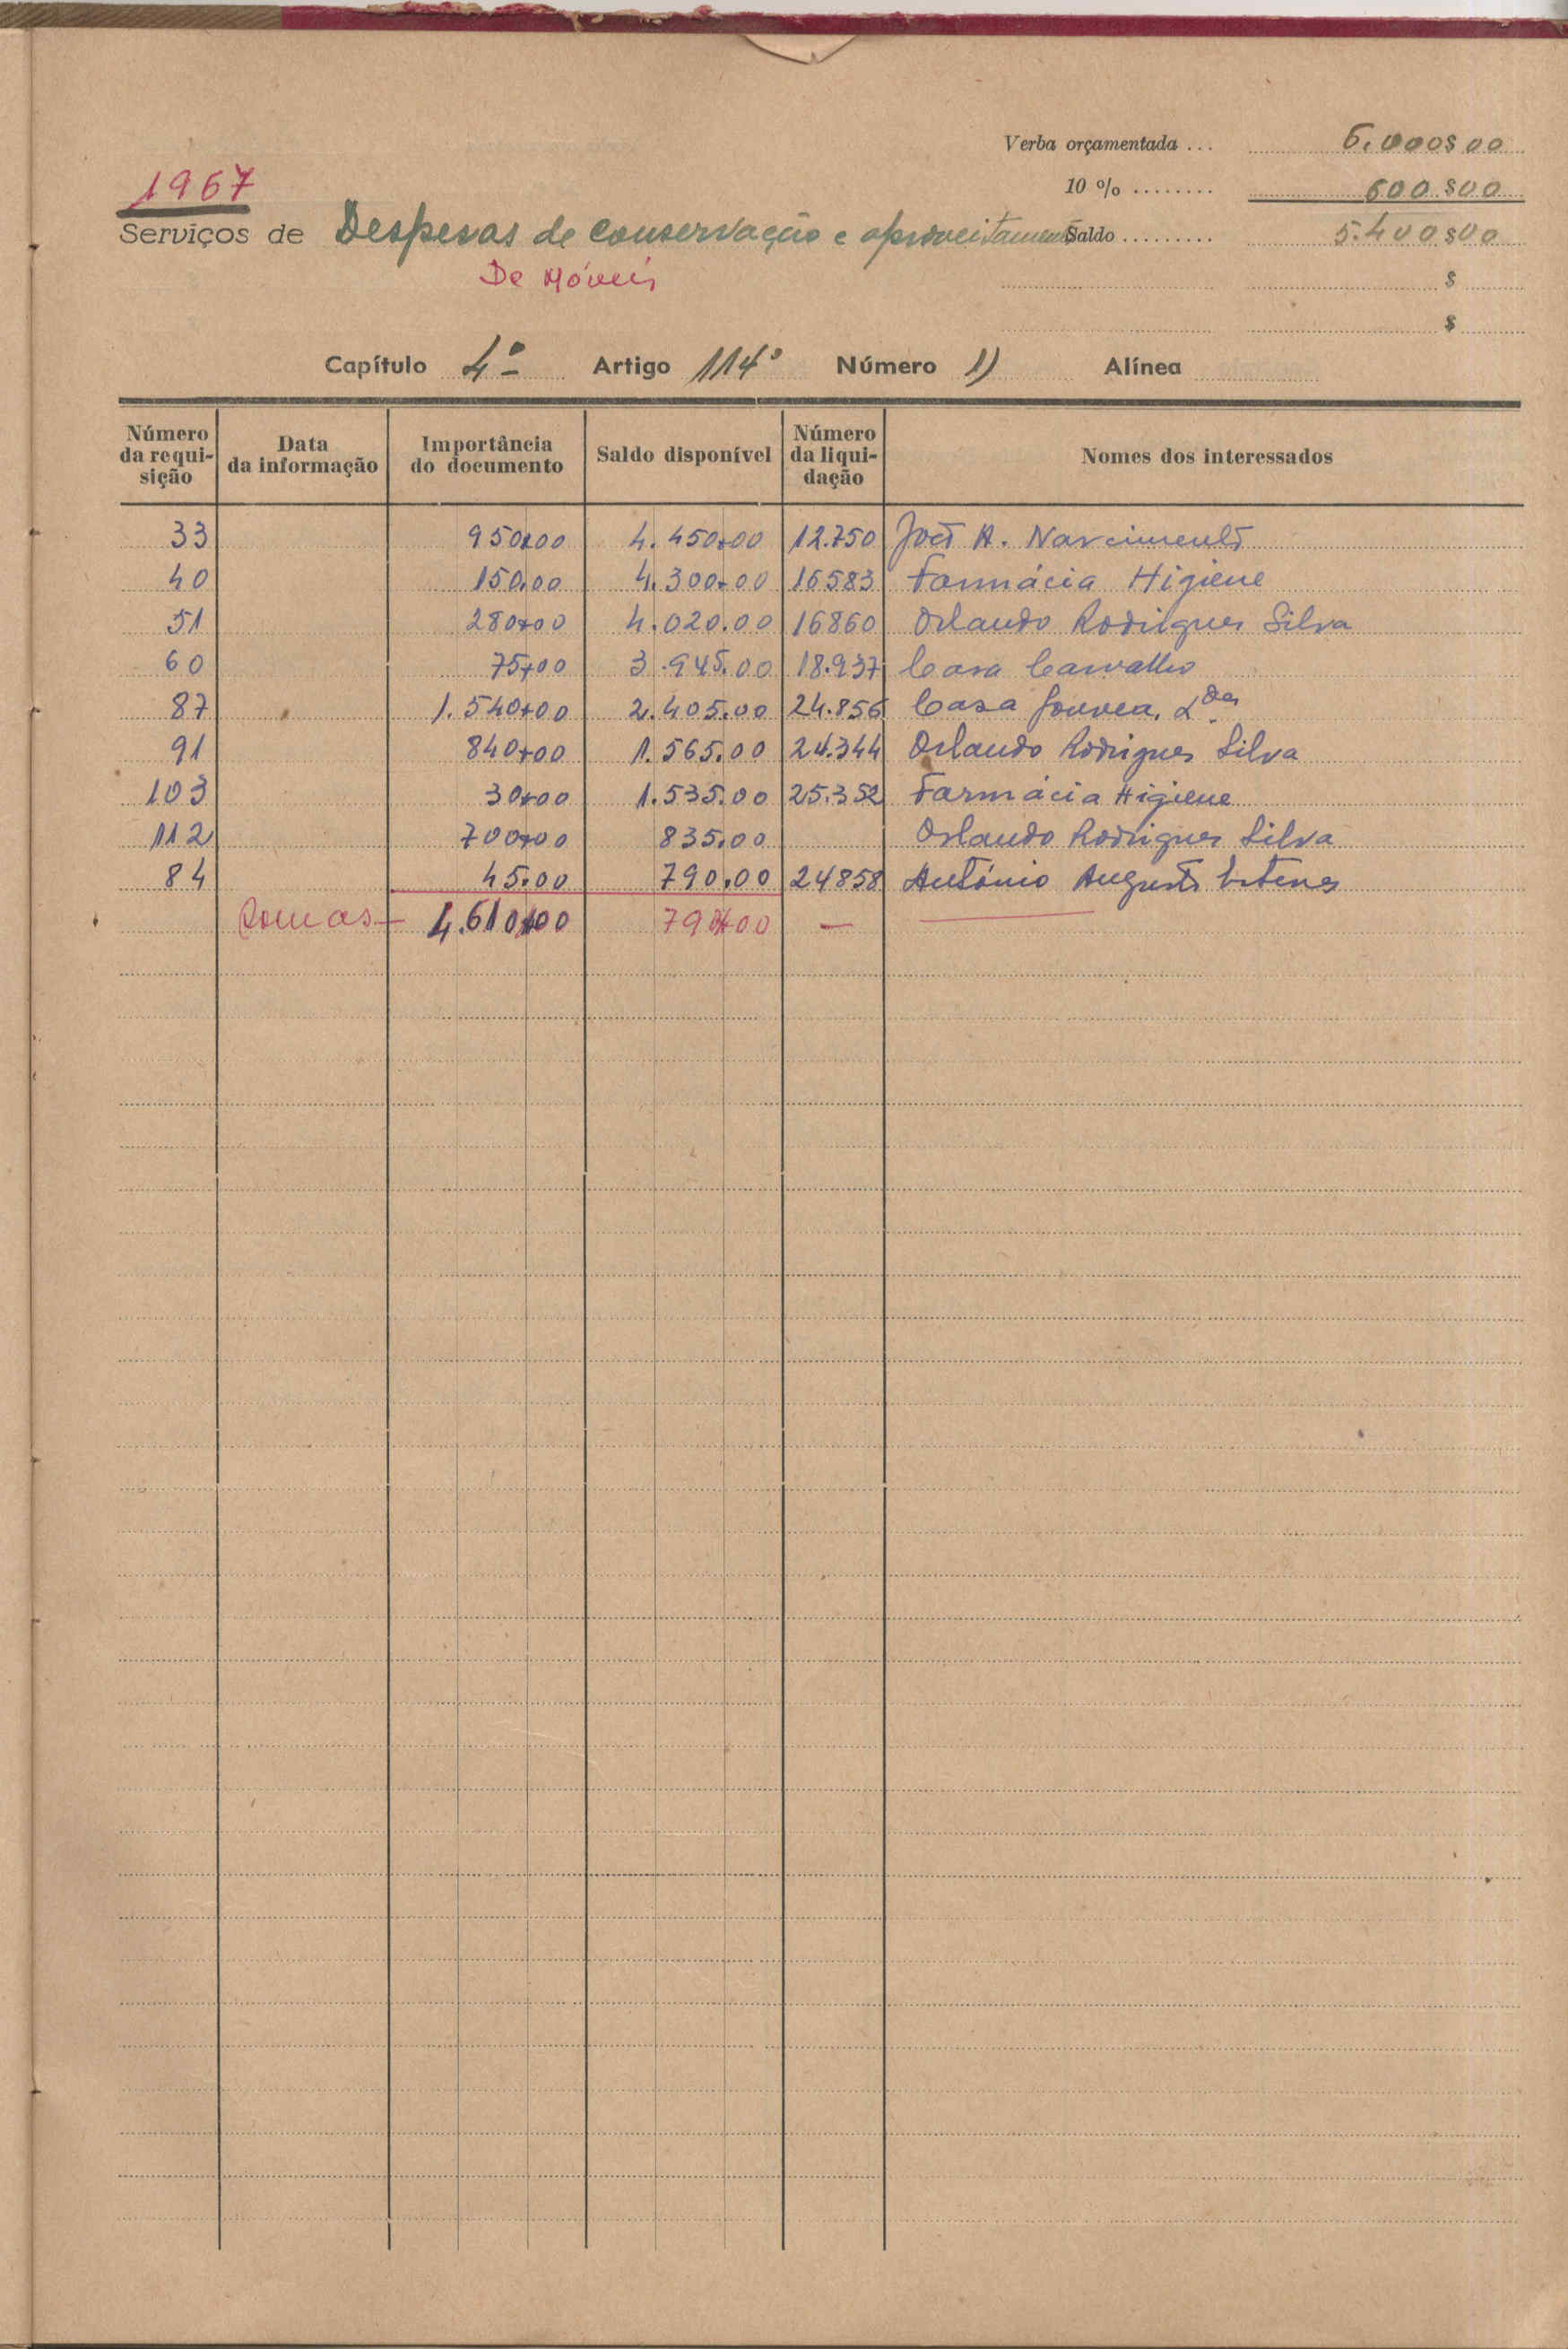 Verba orçamentada ... 6.000$00
1967
10 % ........ 600$00
Serviços de Despesas de conservação e aproveitamento Saldo ......... 5.400$00
De Móveis $
$
Capítulo 4º Artigo 114º Número 1) Alínea
Número da requi-sição Data da informação Importância do documento Saldo disponível Número da liqui-dação Nomes dos interessados
33 950.00 4.450.00 12.750 José A. Nascimento
40 150.00 4.300.00 16583 Farmácia Higiene
51 280.00 4.020.00 16860 Orlando Rodrigues Silva
60 75.00 3.945.00 18.937 Casa Carvalho
87 1.540.00 2.405.00 24.856 Casa Gouvea, Lda
91 840.00 1.565.00 24.344 Orlando Rodrigues Silva
103 30.00 1.535.00 25.352 Farmácia Higiene
112 700.00 835.00 Orlando Rodrigues Silva
84 45.00 790.00 24858 António Augusto
Somas — 4.610.00 790.00 —